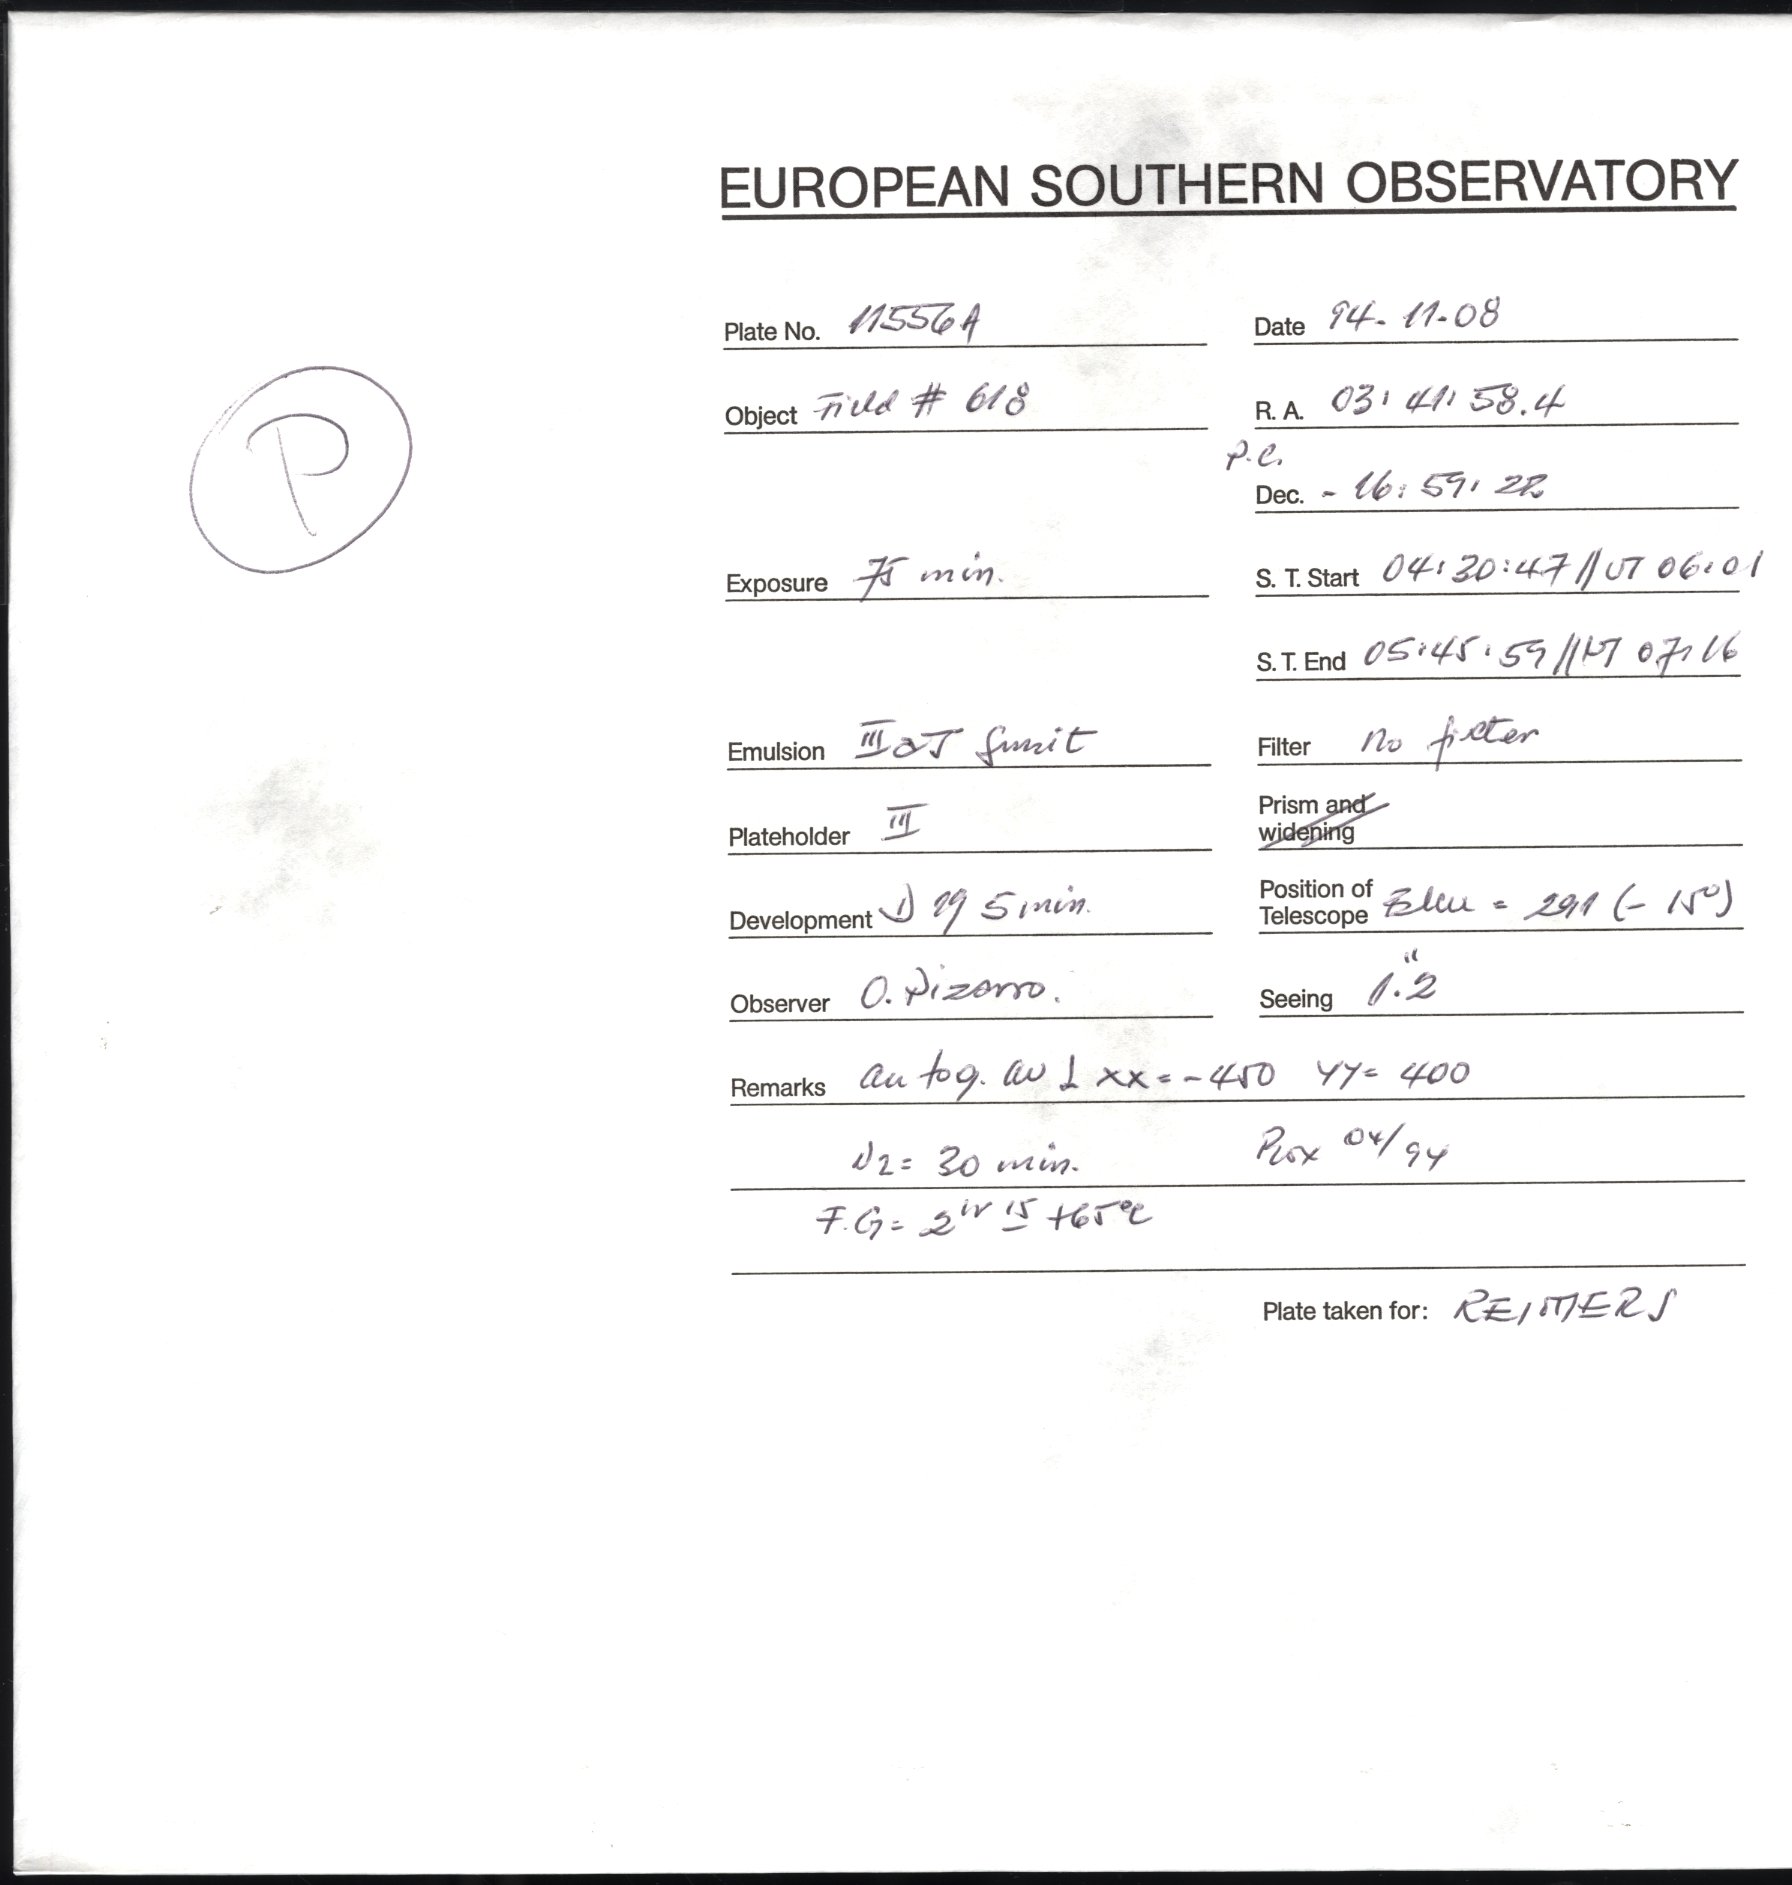 EUROPEAN SOUTHERN OBSERVATORY
Plate No. 11556A
Date 94-11-08
P
Object Field # 618
R. A. 03:41:58.4
P.C.
Dec. -16:59:22
Exposure 75 min.
S. T. Start 04:30:47 // UT 06:01
S. T. End 05:45:59 // UT 07:16
Emulsion III aJ
Filter no filter
Plateholder III
Prism and widening
Development D 19 5 min.
Position of Telescope = 291 (-15°)
Observer O. Pizarro.
Seeing 1."2
Remarks autog. xx=-450 YY= 400
N2= 30 min. 04/94
F.G= +65°C
Plate taken for: REIMERS